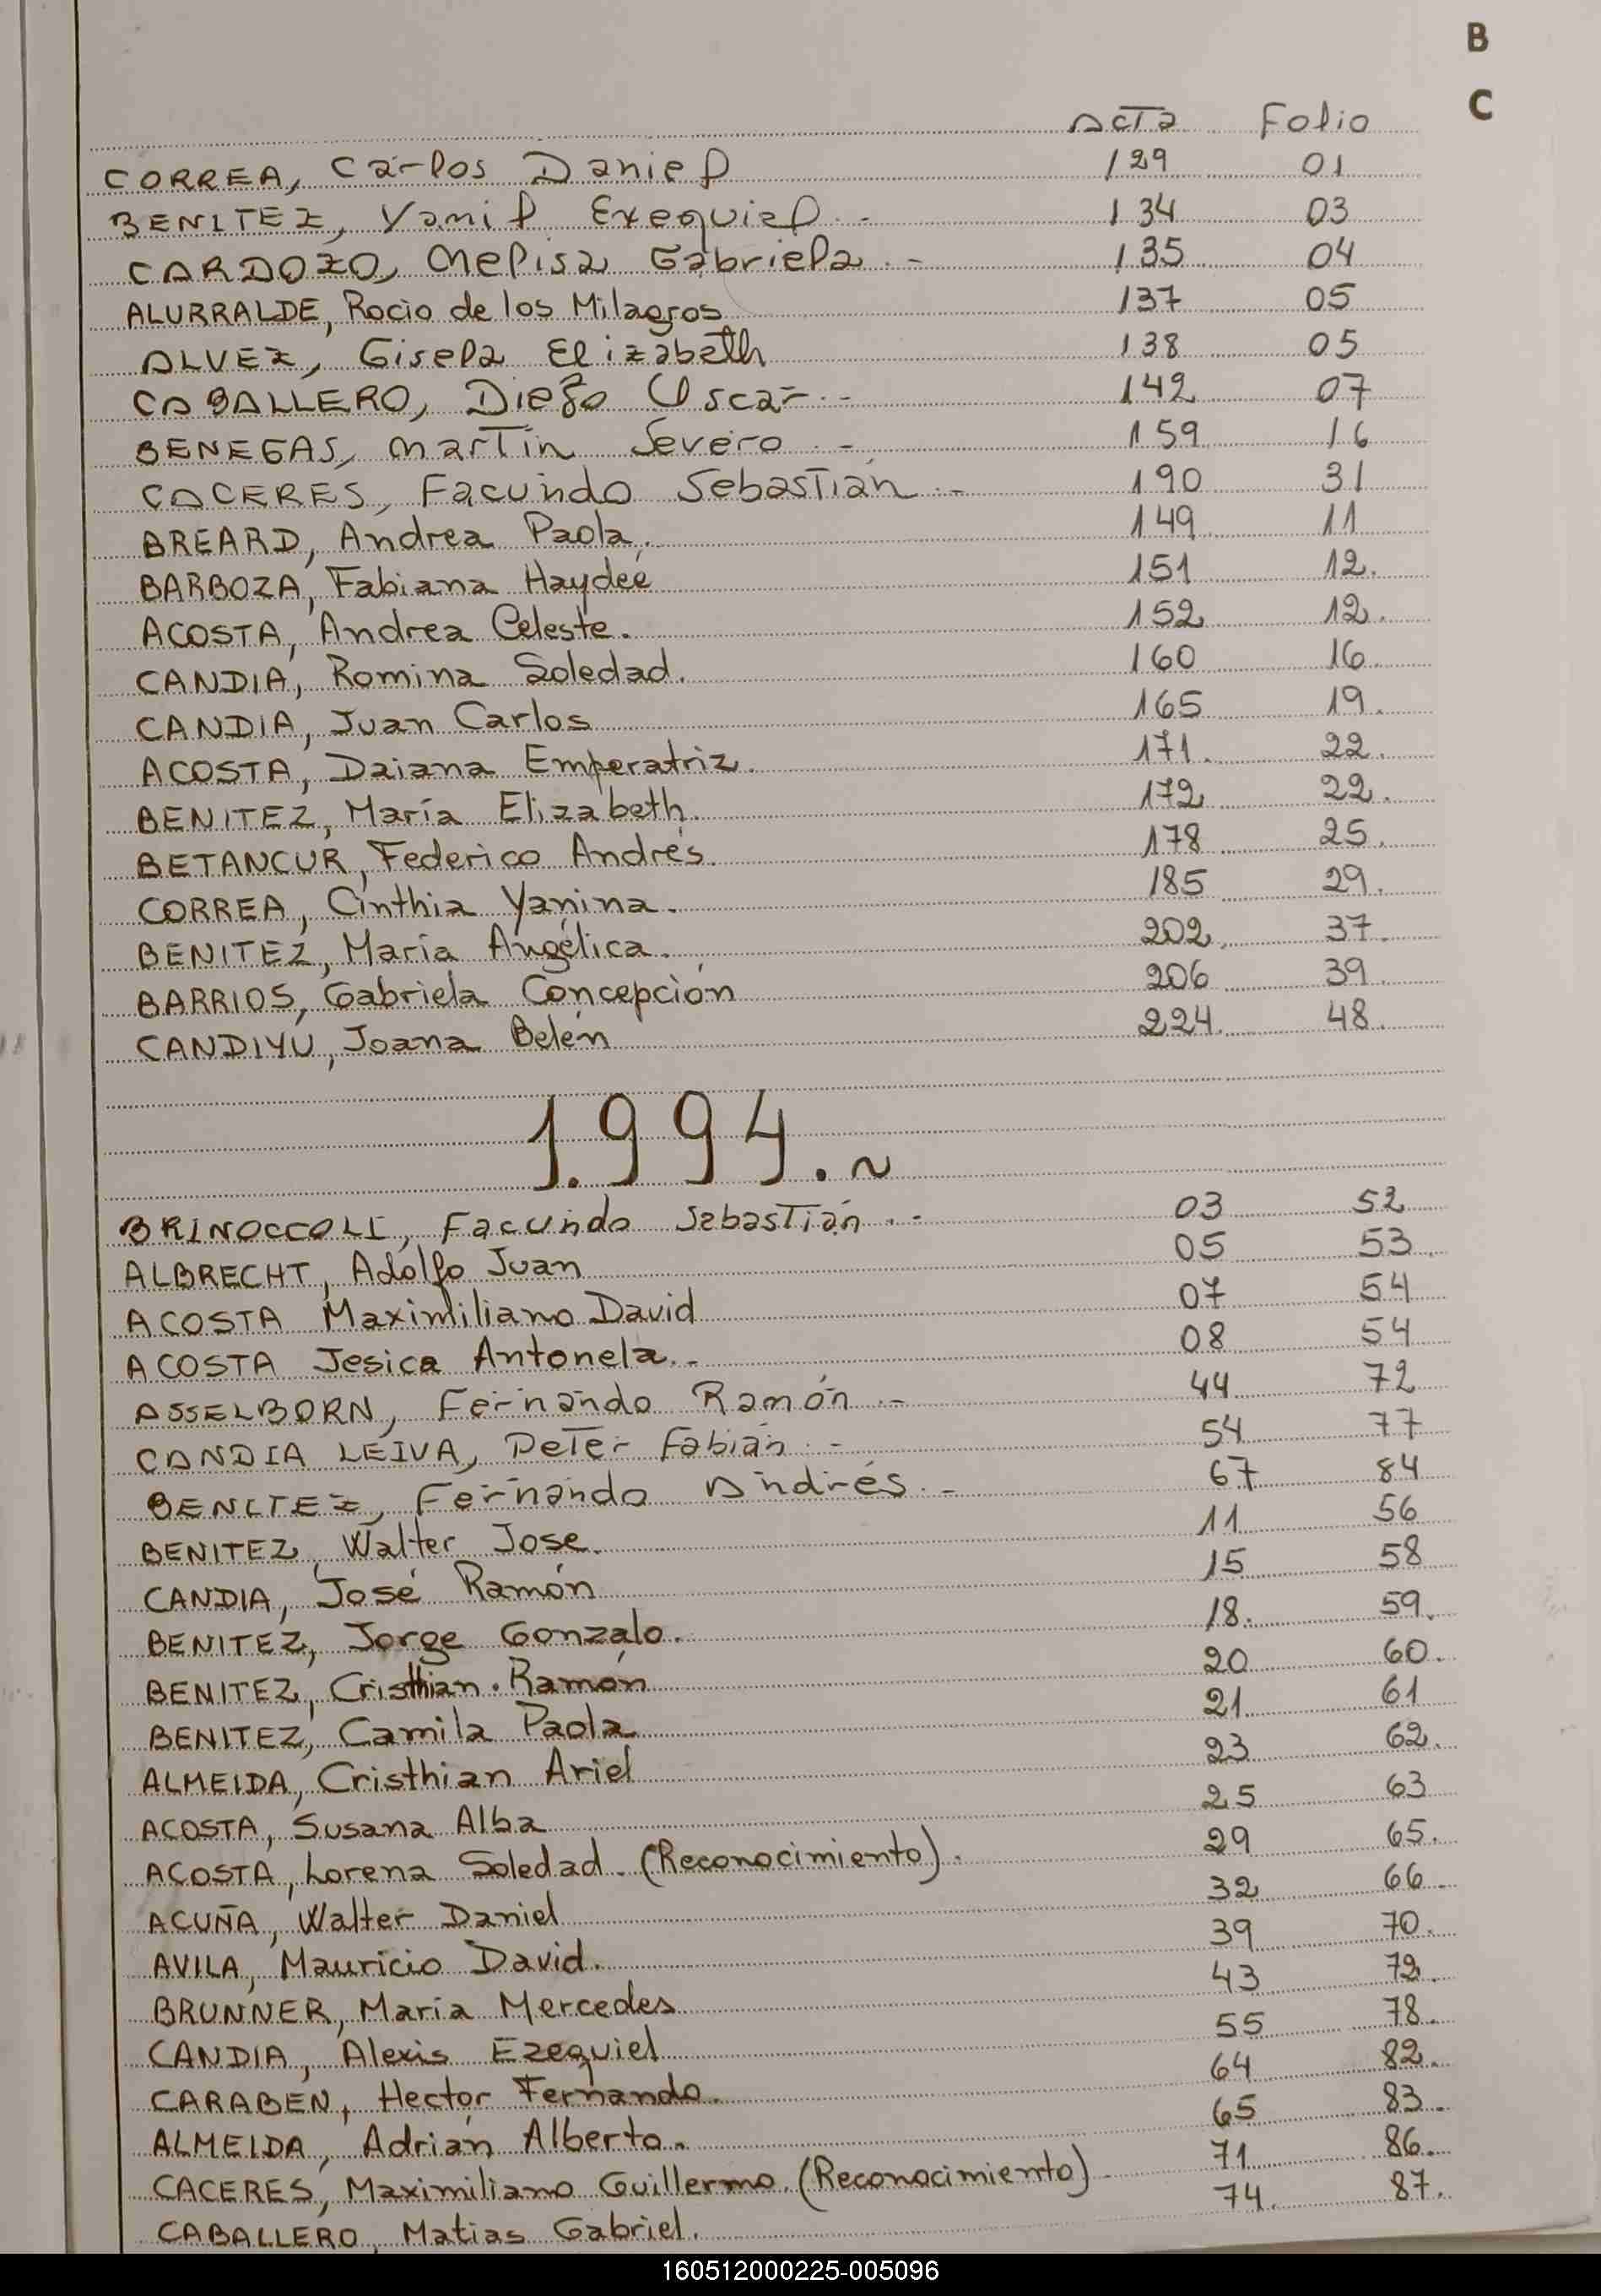 B
C
Acta Folio
CORREA, Carlos Daniel 129 01
BENITEZ, Yamil Exequiel.- 134 03
CARDOZO, Melisa Gabriela.- 135 04
ALURRALDE, Rocio de los Milagros 137 05
ALVEZ, Gisela Elizabeth 138 05
CABALLERO, Diego Oscar.- 142 07
BENEGAS, Martín Severo.- 159 16
CACERES, Facundo Sebastián.- 190 31
BREARD, Andrea Paola. 149 11
BARBOZA, Fabiana Haydeé 151 12.
ACOSTA, Andrea Celeste. 152 12.
CANDIA, Romina Soledad. 160 16.
CANDIA, Juan Carlos 165 19.
ACOSTA, Daiana Emperatriz. 171. 22.
BENITEZ, María Elizabeth. 172 22.
BETANCUR, Federico Andrés. 178 25.
CORREA, Cinthia Yanina. 185 29.
BENITEZ, María Angélica. 202. 37.
BARRIOS, Gabriela Concepción 206 39.
CANDIYÚ, Joana Belén 224. 48.
1.994.~
BRINOCCOLI, Facundo Sebastián.- 03 52
ALBRECHT, Adolfo Juan 05 53.
ACOSTA Maximiliano David 07 54
ACOSTA Jesica Antonela.- 08 54
ASSELBORN, Fernando Ramón.- 44 72
CANDIA LEIVA, Peter Fabián.- 54 77
BENITEZ, Fernando Andrés.- 67 84
BENITEZ, Walter Jose. 11 56
CANDIA, José Ramón 15 58
BENITEZ, Jorge Gonzalo. 18. 59.
BENITEZ, Cristhian. Ramón 20 60.
BENITEZ, Camila Paola 21. 61
ALMEIDA, Cristhian Ariel 23 62.
ACOSTA, Susana Alba 25 63
ACOSTA, Lorena Soledad. (Reconocimiento). 29 65.
ACUÑA, Walter Daniel 32 66.
AVILA, Mauricio David. 39 70.
BRUNNER, María Mercedes 43 72.
CANDIA, Alexis Ezequiel 55 78.
CARABEN, Hector Fernando. 64 82.
ALMEIDA, Adrián Alberto. 65 83.
CACERES, Maximiliano Guillermo. (Reconocimiento) 71 86.
CABALLERO, Matias Gabriel. 74. 87.
160512000225-005096